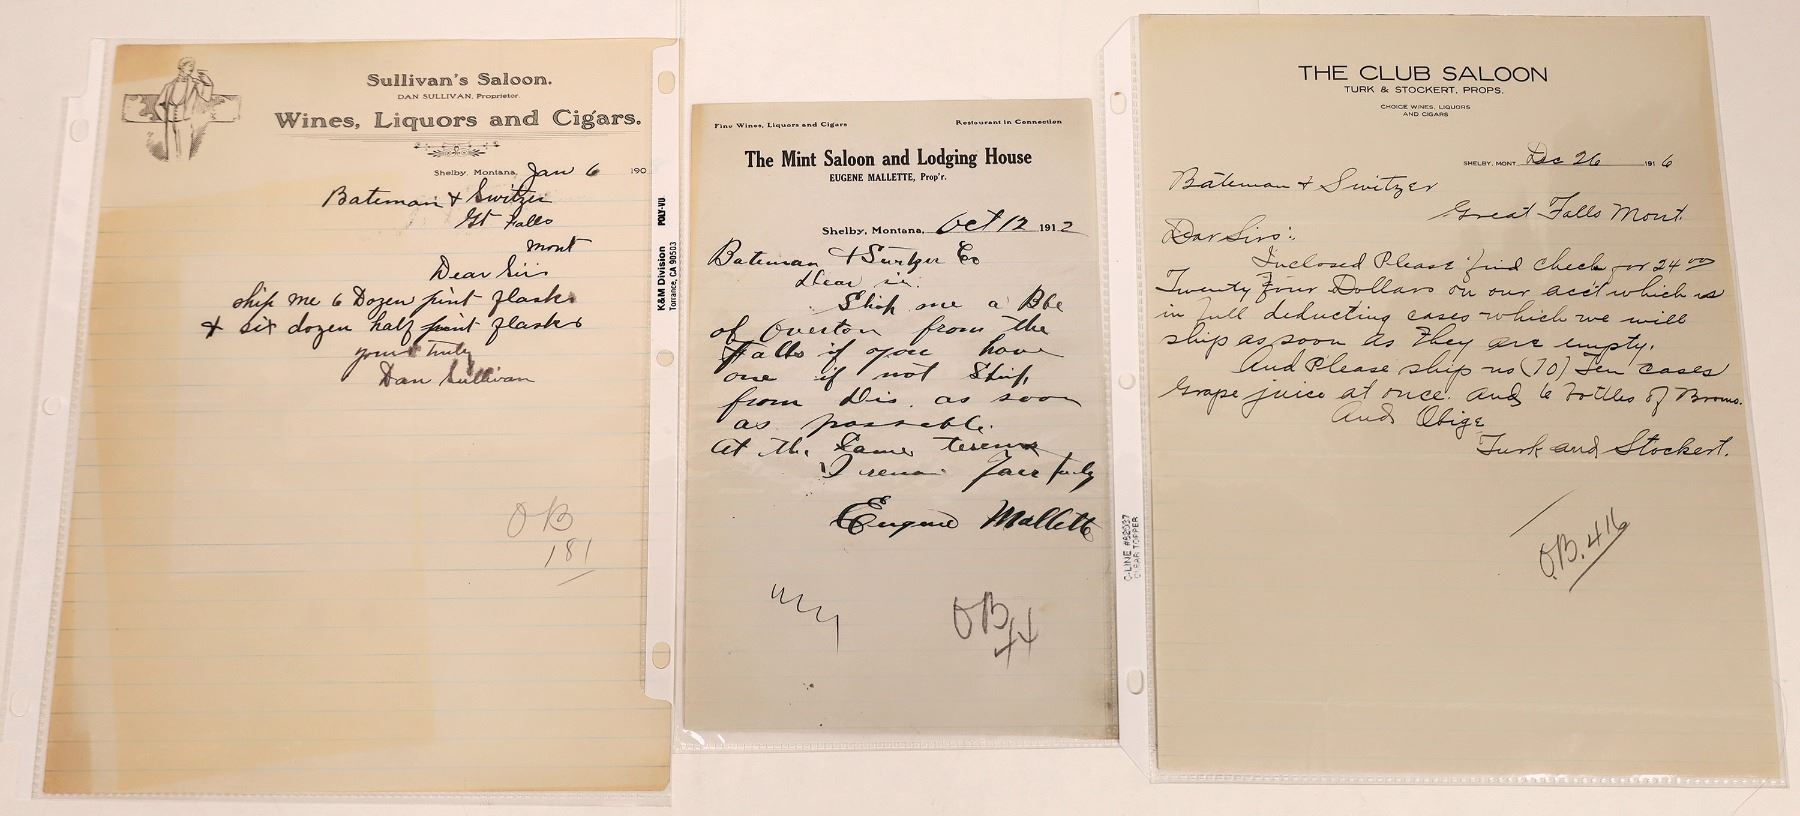 Sullivan's Saloon.
DAN SULLIVAN, Proprietor.
Wines, Liquors and Cigars.
Shelby, Montana, Jan 6 190
Bateman & Switzer
Gt Falls
Mont
Dear Sirs
ship me 6 Dozen pint flasks
& six dozen half pint flasks
yours truly
Dan Sullivan
OB
181
K&M Division POLY-VU
Torrance, CA 90503
Fine Wines, Liquors and Cigars Restaurant in Connection
The Mint Saloon and Lodging House
EUGENE MALLETTE, Prop'r.
Shelby, Montana, Oct 12 1912
Bateman & Switzer Co
Dear sir.
Ship me a Bbl
of Overton from the
Falls if you have
one if not Ship
from Dis. as soon
as possable.
At the Same terems
I remain Yours truly
Eugene Mallette
OB
44
C-LINE #62037
CLEAR TOPPER
THE CLUB SALOON
TURK & STOCKERT, PROPS.
CHOICE WINES, LIQUORS
AND CIGARS
SHELBY, MONT. Dec 26 1916
Bateman & Switzer
Great Falls Mont.
Dear Sirs:
Inclosed Please find check for 24 00
Twenty Four Dollars on our acc't which is
in full deducting cases which we will
ship as soon as They are empty.
And Please ship us (10) Ten cases
Grape juice at once. and 6 bottles of Bromo.
And Oblige
Turk and Stockert.
O.B. 416